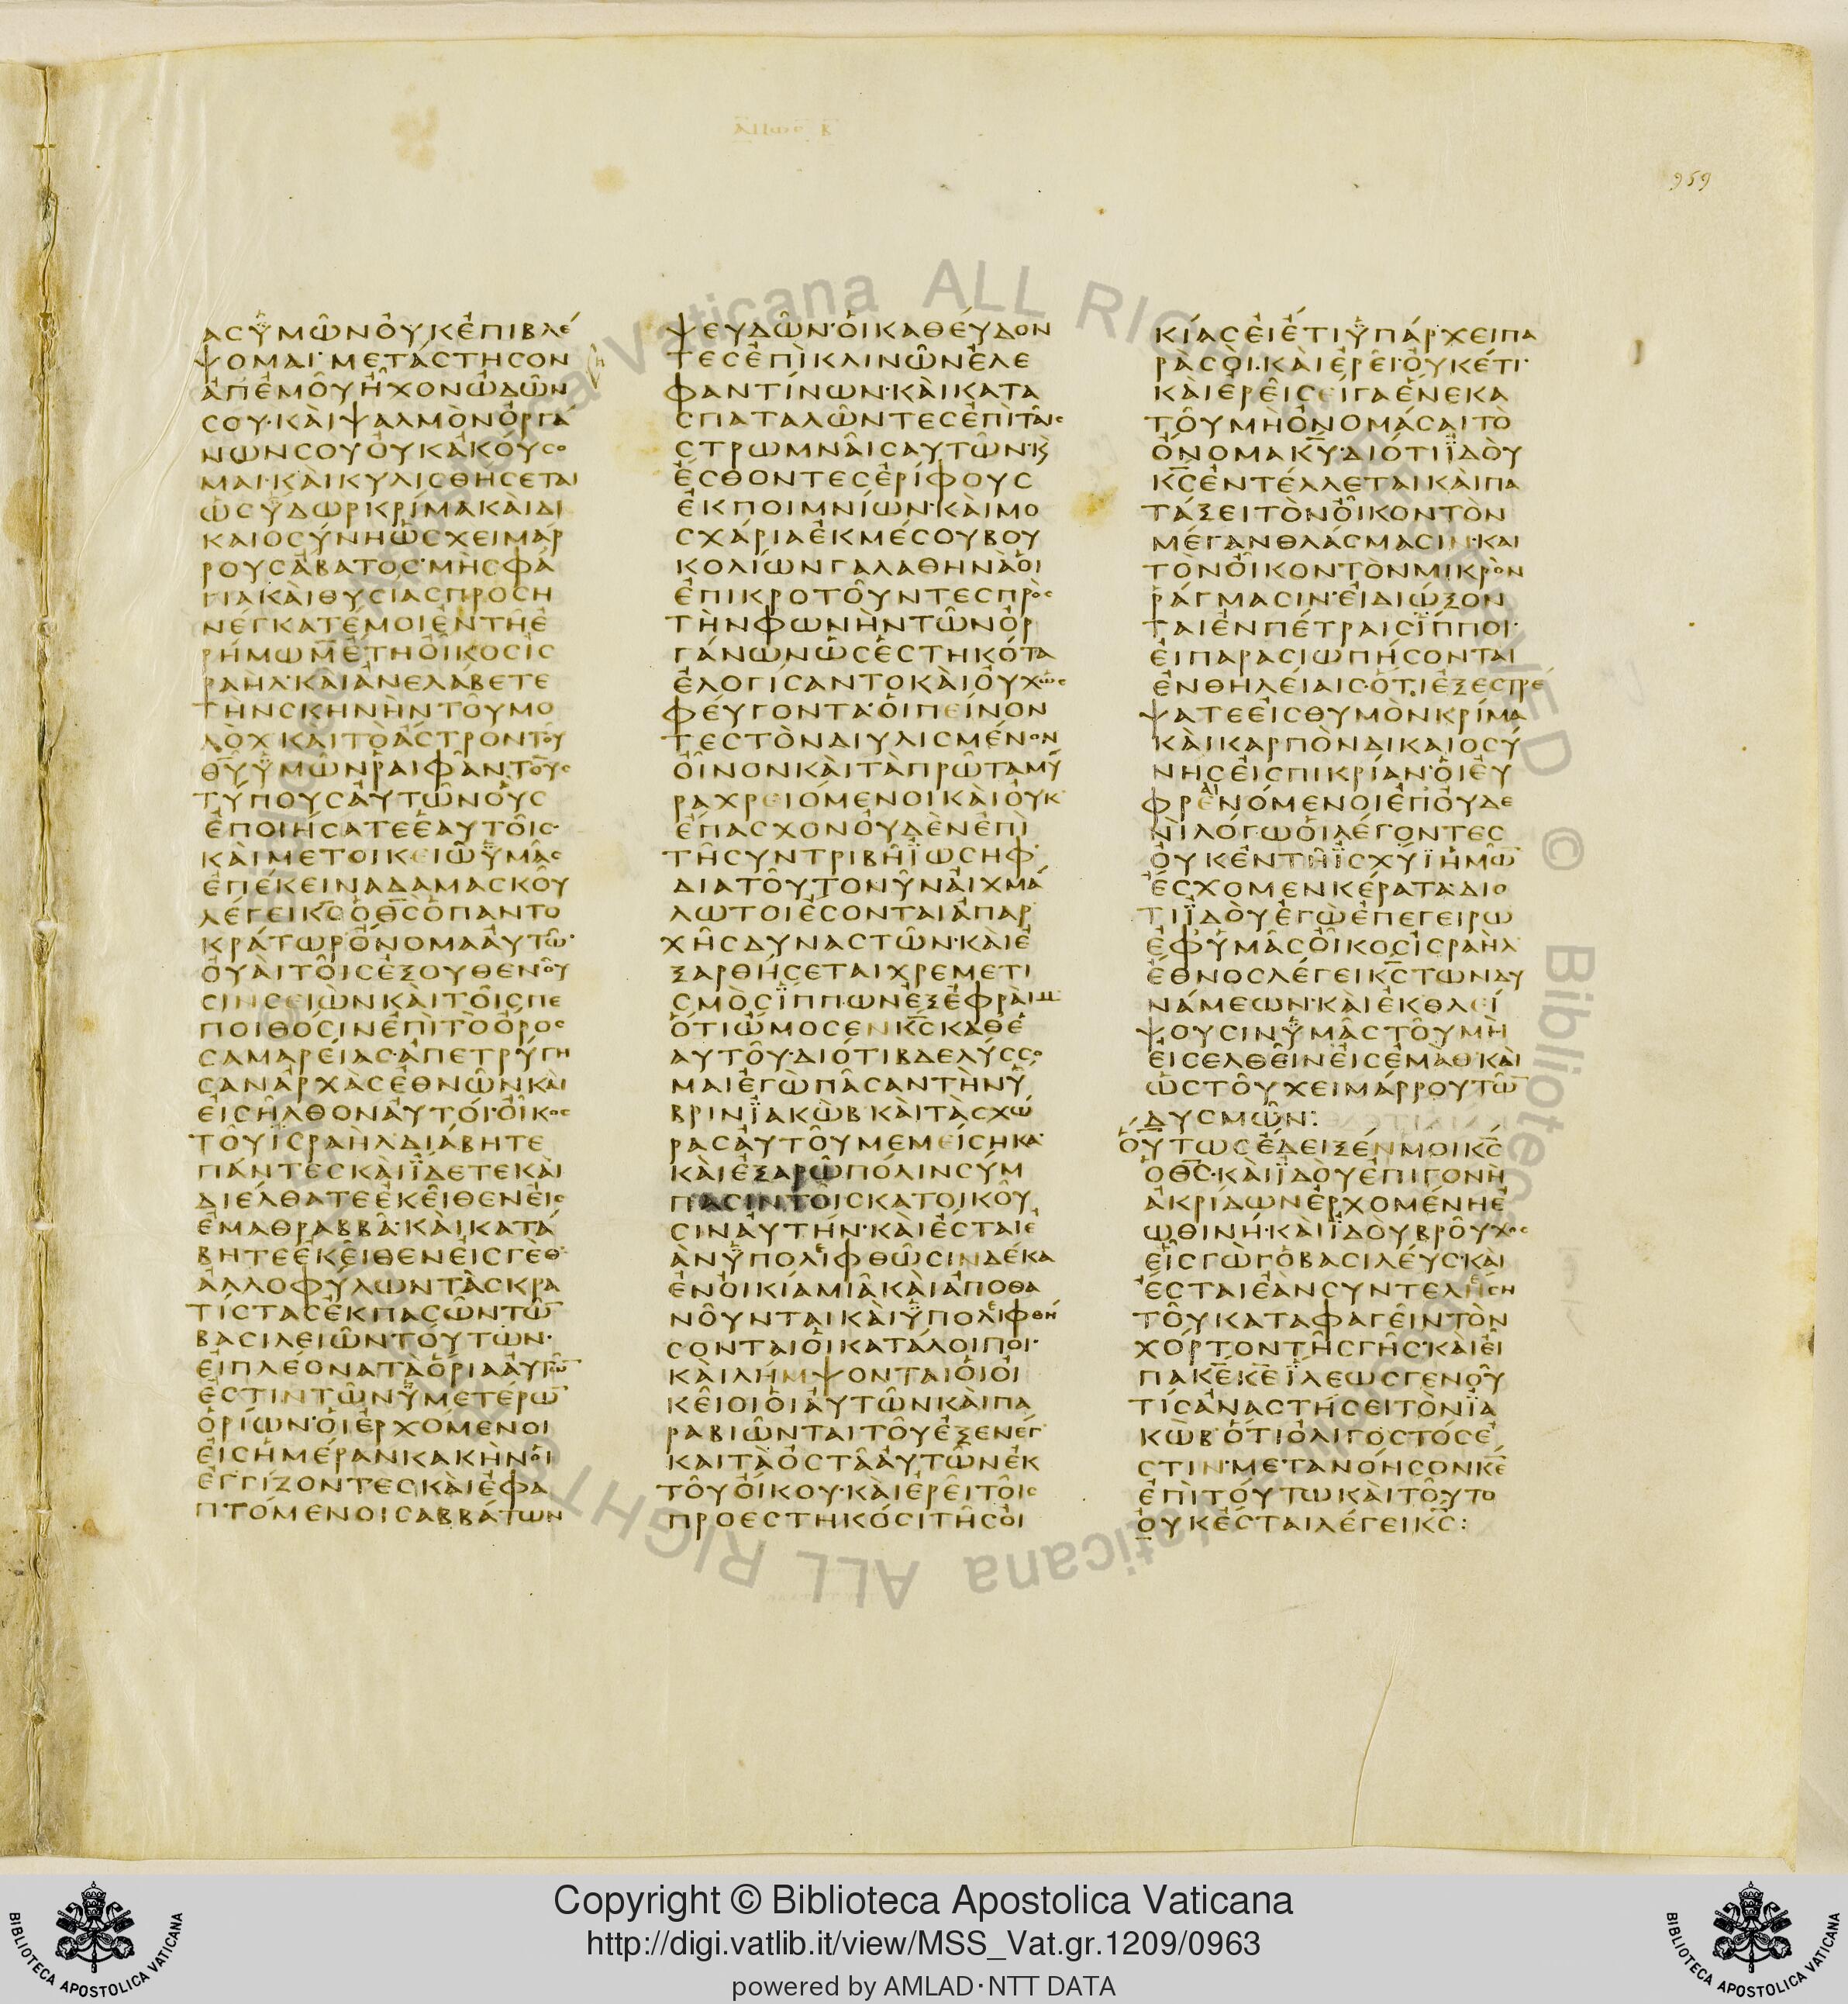 ΑΜΩϹ Β
959
ΑϹΥΜΩΝΟΥΚΕΠΙΒΛΕ
ΨΟΜΑΙ· ΜΕΤΑϹΤΗϹΟΝ
ΑΠΕΜΟΥΗΧΟΝΩΔΩΝ
ϹΟΥ·ΚΑΙΨΑΛΜΟΝΟΡΓΑ
ΝΩΝϹΟΥΟΥΚΑΚΟΥϹΟ
ΜΑΙ·ΚΑΙΚΥΛΙϹΘΗϹΕΤΑΙ
ΩϹΥΔΩΡΚΡΙΜΑΚΑΙΔΙ
ΚΑΙΟϹΥΝΗΩϹΧΕΙΜΑΡ
ΡΟΥϹΑΒΑΤΟϹ·ΜΗϹΦΑ
ΓΙΑΚΑΙΘΥϹΙΑϹΠΡΟϹΗ
ΝΕΓΚΑΤΕΜΟΙΕΝΤΗΕ
ΡΗΜΩΜ̅ΕΤΗΟΙΚΟϹΙϹ
ΡΑΗΛ·ΚΑΙΑΝΕΛΑΒΕΤΕ
ΤΗΝϹΚΗΝΗΝΤΟΥΜΟ
ΛΟΧΚΑΙΤΟΑϹΤΡΟΝΤΟΥ
Θ̅Υ̅ΥΜΩΝΡΑΙΦΑΝΤΟΥϹ
ΤΥΠΟΥϹΑΥΤΩΝΟΥϹ
ΕΠΟΙΗϹΑΤΕΕΑΥΤΟΙϹ·
ΚΑΙΜΕΤΟΙΚΕΙΩΥΜΑϹ
ΕΠΕΚΕΙΝΑΔΑΜΑϹΚΟΥ
ΛΕΓΕΙΚ̅Ϲ̅ΟΘ̅Ϲ̅ΟΠΑΝΤΟ
ΚΡΑΤΩΡΟΝΟΜΑΑΥΤΩ·
ΟΥΑΙΤΟΙϹΕΞΟΥΘΕΝΟΥ
ϹΙΝϹΕΙΩΝΚΑΙΤΟΙϹΠΕ
ΠΟΙΘΟϹΙΝΕΠΙΤΟΟΡΟϹ
ϹΑΜΑΡΕΙΑϹ·ΑΠΕΤΡΥΓΗ
ϹΑΝΑΡΧΑϹΕΘΝΩΝΚΑΙ
ΕΙϹΗΛΘΟΝΑΥΤΟΙ·ΟΙΚΟϹ
ΤΟΥΙϹΡΑΗΛΔΙΑΒΗΤΕ
ΠΑΝΤΕϹΚΑΙΙΔΕΤΕΚΑΙ
ΔΙΕΛΘΑΤΕΕΚΕΙΘΕΝΕΙϹ
ΕΜΑΘΡΑΒΒΑ·ΚΑΙΚΑΤΑ
ΒΗΤΕΕΚΕΙΘΕΝΕΙϹΓΕΘ·
ΑΛΛΟΦΥΛΩΝΤΑϹΚΡΑ
ΤΙϹΤΑϹΕΚΠΑϹΩΝΤΩ̅
ΒΑϹΙΛΕΙΩΝΤΟΥΤΩΝ·
ΕΙΠΛΕΟΝΑΤΑΟΡΙΑΑΥΤΩ̅
ΕϹΤΙΝΤΩΝΥΜΕΤΕΡΩ̅
ΟΡΙΩΝ·ΟΙΕΡΧΟΜΕΝΟΙ
ΕΙϹΗΜΕΡΑΝΚΑΚΗΝΟΙ
ΕΓΓΙΖΟΝΤΕϹΚΑΙΕΦΑ
ΠΤΟΜΕΝΟΙϹΑΒΒΑΤΩΝ
ΨΕΥΔΩΝ·ΟΙΚΑΘΕΥΔΟΝ
ΤΕϹΕΠΙΚΛΙΝΩΝΕΛΕ
ΦΑΝΤΙΝΩΝ·ΚΑΙΚΑΤΑ
ϹΠΑΤΑΛΩΝΤΕϹΕΠΙΤΑΙϹ
ϹΤΡΩΜΝΑΙϹΑΥΤΩΝ·Ϗ
ΕϹΘΟΝΤΕϹΕΡΙΦΟΥϹ
ΕΚΠΟΙΜΝΙΩΝ·ΚΑΙΜΟ
ϹΧΑΡΙΑΕΚΜΕϹΟΥΒΟΥ
ΚΟΛΙΩΝΓΑΛΑΘΗΝΑΟΙ
ΕΠΙΚΡΟΤΟΥΝΤΕϹΠΡΟϹ
ΤΗΝΦΩΝΗΝΤΩΝΟΡ
ΓΑΝΩΝΩϹΕϹΤΗΚΟΤΑ
ΕΛΟΓΙϹΑΝΤΟΚΑΙΟΥΧΩϹ
ΦΕΥΓΟΝΤΑ·ΟΙΠΕΙΝΟΝ
ΤΕϹΤΟΝΔΙΥΛΙϹΜΕΝΟΝ
ΟΙΝΟΝΚΑΙΤΑΠΡΩΤΑΜΥ
ΡΑΧΡΕΙΟΜΕΝΟΙΚΑΙΟΥΚ
ΕΠΑϹΧΟΝΟΥΔΕΝΕΠΙ
ΤΗϹΥΝΤΡΙΒΗΪΩϹΗΦ·
ΔΙΑΤΟΥΤΟΝΥΝΑΙΧΜΑ
ΛΩΤΟΙΕϹΟΝΤΑΙΑΠΑΡ
ΧΗϹΔΥΝΑϹΤΩΝ·ΚΑΙΕ
ΞΑΡΘΗϹΕΤΑΙΧΡΕΜΕΤΙ
ϹΜΟϹΪΠΠΩΝΕΞΕΦΡΑΙΜ
ΟΤΙΩΜΟϹΕΝΚ̅Ϲ̅ΚΑΘΕ
ΑΥΤΟΥ·ΔΙΟΤΙΒΔΕΛΥϹϹΟ
ΜΑΙΕΓΩΠΑϹΑΝΤΗΝΥ
ΒΡΙΝΪΑΚΩΒΚΑΙΤΑϹΧΩ
ΡΑϹΑΥΤΟΥΜΕΜΕΙϹΗΚΑ·
ΚΑΙΕΞΑΡΩΠΟΛΙΝϹΥΜ
ΠΑϹΙΝΤΟΙϹΚΑΤΟΙΚΟΥ
ϹΙΝΑΥΤΗΝ·ΚΑΙΕϹΤΑΙΕ
ΑΝΫΠΟΛΙΦΘΩϹΙΝΔΕΚΑ
ΕΝΟΙΚΙΑΜΙΑΚΑΙΑΠΟΘΑ
ΝΟΥΝΤΑΙΚΑΙΫΠΟΛΙΦΘΗ
ϹΟΝΤΑΙΟΙΚΑΤΑΛΟΙΠΟΙ·
ΚΑΙΛΗΜΨΟΝΤΑΙΟΙΟΙ
ΚΕΙΟΙΟΙΑΥΤΩΝΚΑΙΠΑ
ΡΑΒΙΩΝΤΑΙΤΟΥΕΞΕΝΕΓ
ΚΑΙΤΑΟϹΤΑΑΥΤΩΝΕΚ
ΤΟΥΟΙΚΟΥ·ΚΑΙΕΡΕΙΤΟΙϹ
ΠΡΟΕϹΤΗΚΟϹΙΤΗϹΟΙ
ΚΙΑϹΕΙΕΤΙΫΠΑΡΧΕΙΠΑ
ΡΑϹΟΙ·ΚΑΙΕΡΕΙ·ΟΥΚΕΤΙ·
ΚΑΙΕΡΕΙϹΕΙΓΑΕΝΕΚΑ
ΤΟΥΜΗΟΝΟΜΑϹΑΙΤΟ
ΟΝΟΜΑΚ̅Υ̅·ΔΙΟΤΙΪΔΟΥ
Κ̅Ϲ̅ΕΝΤΕΛΛΕΤΑΙΚΑΙΠΑ
ΤΑΞΕΙΤΟΝΟΙΚΟΝΤΟΝ
ΜΕΓΑΝΘΛΑϹΜΑϹΙΝ·ΚΑΙ
ΤΟΝΟΙΚΟΝΤΟΝΜΙΚΡΟΝ
ΡΑΓΜΑϹΙΝ·ΕΙΔΙΩΞΟΝ
ΤΑΙΕΝΠΕΤΡΑΙϹΪΠΠΟΙ·
ΕΙΠΑΡΑϹΙΩΠΗϹΟΝΤΑΙ
ΕΝΘΗΛΕΙΑΙϹ·ΟΤΙΕΞΕϹΤΡΕ
ΨΑΤΕΕΙϹΘΥΜΟΝΚΡΙΜΑ
ΚΑΙΚΑΡΠΟΝΔΙΚΑΙΟϹΥ
ΝΗϹΕΙϹΠΙΚΡΙΑΝ·ΟΙΕΥ
ΦΡΕΝΟΜΕΝΟΙΕΠΟΥΔΕ
ΝΙΛΟΓΩΟΙΛΕΓΟΝΤΕϹ
ΟΥΚΕΝΤΗΪϹΧΥΪΗΜΩ̅
ΕϹΧΟΜΕΝΚΕΡΑΤΑ·ΔΙΟ
ΤΙΪΔΟΥΕΓΩΕΠΕΓΕΙΡΩ
ΕΦΥΜΑϹΟΙΚΟϹΙϹΡΑΗΛ
ΕΘΝΟϹΛΕΓΕΙΚ̅Ϲ̅ΤΩΝΔΥ
ΝΑΜΕΩΝ·ΚΑΙΕΚΘΛΕΙ
ΨΟΥϹΙΝΫΜΑϹΤΟΥΜΗ
ΕΙϹΕΛΘΕΙΝΕΙϹΕΜΑΘ·ΚΑΙ
ΩϹΤΟΥΧΕΙΜΑΡΡΟΥΤΩ̅
ΔΥϹΜΩΝ:
ΟΥΤΩϹΕΔΕΙΞΕΝΜΟΙΚ̅Ϲ̅
ΟΘ̅Ϲ̅·ΚΑΙΪΔΟΥΕΠΙΓΟΝΗ
ΑΚΡΙΔΩΝΕΡΧΟΜΕΝΗΕ
ΩΘΙΝΗ·ΚΑΙΪΔΟΥΒΡΟΥΧΟϹ
ΕΙϹΓΩΓΟΒΑϹΙΛΕΥϹ·ΚΑΙ
ΕϹΤΑΙΕΑΝϹΥΝΤΕΛΕϹΗ
ΤΟΥΚΑΤΑΦΑΓΕΙΝΤΟΝ
ΧΟΡΤΟΝΤΗϹΓΗϹ·ΚΑΙΕΙ
ΠΑΚ̅Ε̅Κ̅Ε̅ΪΛΕΩϹΓΕΝΟΥ
ΤΙϹΑΝΑϹΤΗϹΕΙΤΟΝΪΑ
ΚΩΒ·ΟΤΙΟΛΙΓΟϹΤΟϹΕ
ϹΤΙΝ·ΜΕΤΑΝΟΗϹΟΝΚ̅Ε̅
ΕΠΙΤΟΥΤΩΚΑΙΤΟΥΤΟ
ΟΥΚΕϹΤΑΙΛΕΓΕΙΚ̅Ϲ̅:
Copyright © Biblioteca Apostolica Vaticana
http://digi.vatlib.it/view/MSS_Vat.gr.1209/0963
powered by AMLAD·NTT DATA
BIBLIOTECA APOSTOLICA VATICANA
BIBLIOTECA APOSTOLICA VATICANA